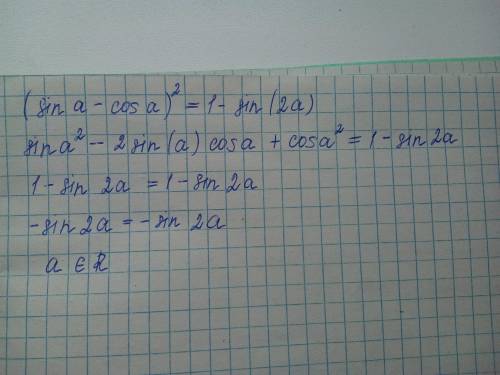 (sin a - cos a)² = 1 - sin (2a)
sin a² - 2 sin (a) cos a + cos a² = 1 - sin 2a
1 - sin 2a = 1 - sin 2a
- sin 2a = - sin 2a
a ∈ R